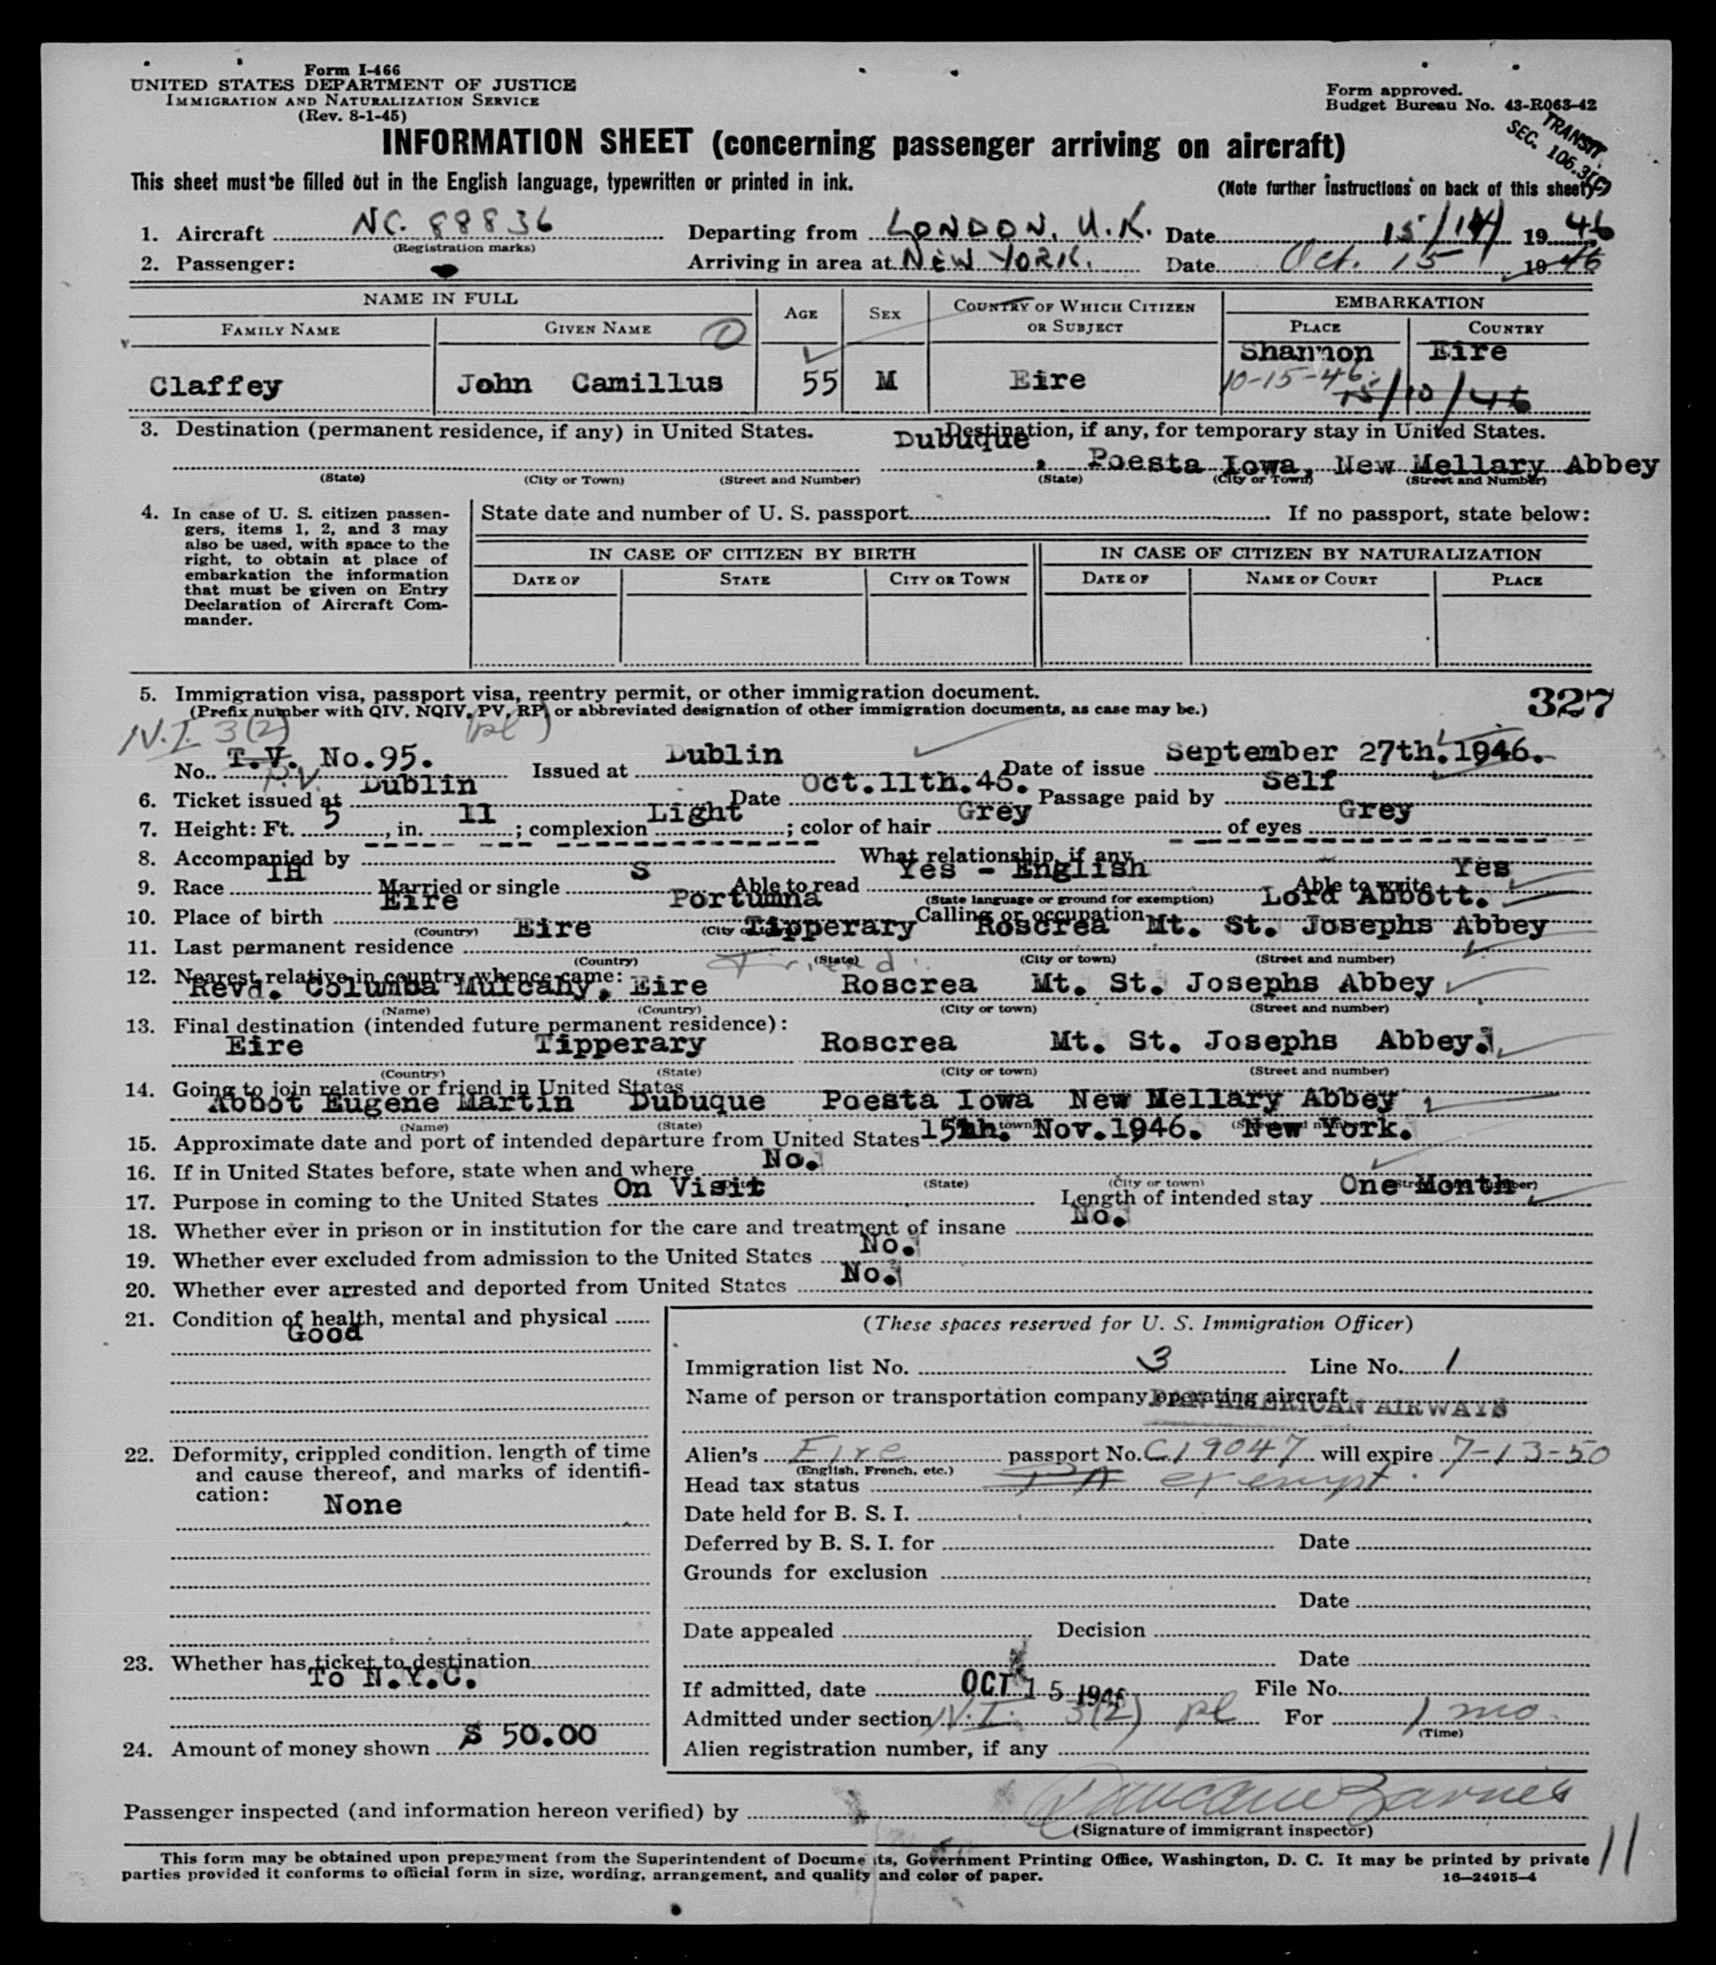 Form I-466
UNITED STATES DEPARTMENT OF JUSTICE
IMMIGRATION AND NATURALIZATION SERVICE
(Rev. 8-1-45)
Form approved.
Budget Bureau No. 43-R063-42
TRANSIT
SEC. 106.3(
INFORMATION SHEET (concerning passenger arriving on aircraft)
This sheet must be filled out in the English language, typewritten or printed in ink.
(Note further instructions on back of this sheet)
1. Aircraft NC. 88836 Departing from LONDON, U.K. Date 15/14/ 1946
(Registration marks)
2. Passenger: Arriving in area at NEW YORK. Date Oct. 15 1946
NAME IN FULL AGE SEX COUNTRY OF WHICH CITIZEN OR SUBJECT EMBARKATION
FAMILY NAME GIVEN NAME PLACE COUNTRY
Shannon Eire
Claffey John Camillus 55 M Eire 10-15-46
15/10/46
3. Destination (permanent residence, if any) in United States. Destination, if any, for temporary stay in United States.
Dubuque, Poesta Iowa, New Mellary Abbey
(State) (City or Town) (Street and Number) (State) (City or Town) (Street and Number)
4. In case of U. S. citizen passen-
gers, items 1, 2, and 3 may
also be used, with space to the
right, to obtain at place of
embarkation the information
that must be given on Entry
Declaration of Aircraft Com-
mander.
State date and number of U. S. passport If no passport, state below:
IN CASE OF CITIZEN BY BIRTH IN CASE OF CITIZEN BY NATURALIZATION
DATE OF STATE CITY OR TOWN DATE OF NAME OF COURT PLACE
5. Immigration visa, passport visa, reentry permit, or other immigration document.
(Prefix number with QIV, NQIV, PV, RP, or abbreviated designation of other immigration documents, as case may be.)
327
N.I. 3(2) (pl)
No. T.V. No.95. Issued at Dublin Date of issue September 27th. 1946.
P.V.
6. Ticket issued at Dublin Date Oct.11th.46. Passage paid by Self
7. Height: Ft. 5, in. 11; complexion Light; color of hair Grey of eyes Grey
8. Accompanied by What relationship, if any
9. Race IH Married or single S Able to read Yes - English Able to write Yes
(State language or ground for exemption)
10. Place of birth Eire Portumna Calling or occupation Lord Abbott.
(Country) (City or town)
11. Last permanent residence Eire Tipperary Roscrea Mt. St. Josephs Abbey
(Country) (State) (City or town) (Street and number)
12. Nearest relative in country whence came: Friend.
Revd. Columba Mulcahy, Eire Roscrea Mt. St. Josephs Abbey
(Name) (Country) (City or town) (Street and number)
13. Final destination (intended future permanent residence):
Eire Tipperary Roscrea Mt. St. Josephs Abbey.
(Country) (State) (City or town) (Street and number)
14. Going to join relative or friend in United States
Abbot Eugene Martin Dubuque Poesta Iowa New Mellary Abbey
(Name) (State) (City or town) (Street and number)
15. Approximate date and port of intended departure from United States 15th. Nov.1946. New York.
16. If in United States before, state when and where No.
(State) (City or town) (Street and number)
17. Purpose in coming to the United States On Visit Length of intended stay One Month
18. Whether ever in prison or in institution for the care and treatment of insane No.
19. Whether ever excluded from admission to the United States No.
20. Whether ever arrested and deported from United States No.
21. Condition of health, mental and physical
Good
22. Deformity, crippled condition, length of time
and cause thereof, and marks of identifi-
cation:
None
23. Whether has ticket to destination
To N.Y.C.
24. Amount of money shown $ 50.00
(These spaces reserved for U. S. Immigration Officer)
Immigration list No. 3 Line No. 1
Name of person or transportation company operating aircraft
PAN AMERICAN AIRWAYS
Alien's Eire passport No. C19047 will expire 7-13-50
(English, French, etc.)
Head tax status exempt.
Date held for B. S. I.
Deferred by B. S. I. for Date
Grounds for exclusion
Date
Date appealed Decision
Date
If admitted, date OCT 15 1946 File No.
Admitted under section N.I. 3(2) pl For 1 mo.
(Time)
Alien registration number, if any
Passenger inspected (and information hereon verified) by
(Signature of immigrant inspector)
This form may be obtained upon prepayment from the Superintendent of Documents, Government Printing Office, Washington, D. C. It may be printed by private
parties provided it conforms to official form in size, wording, arrangement, and quality and color of paper.
16—24915-4
11